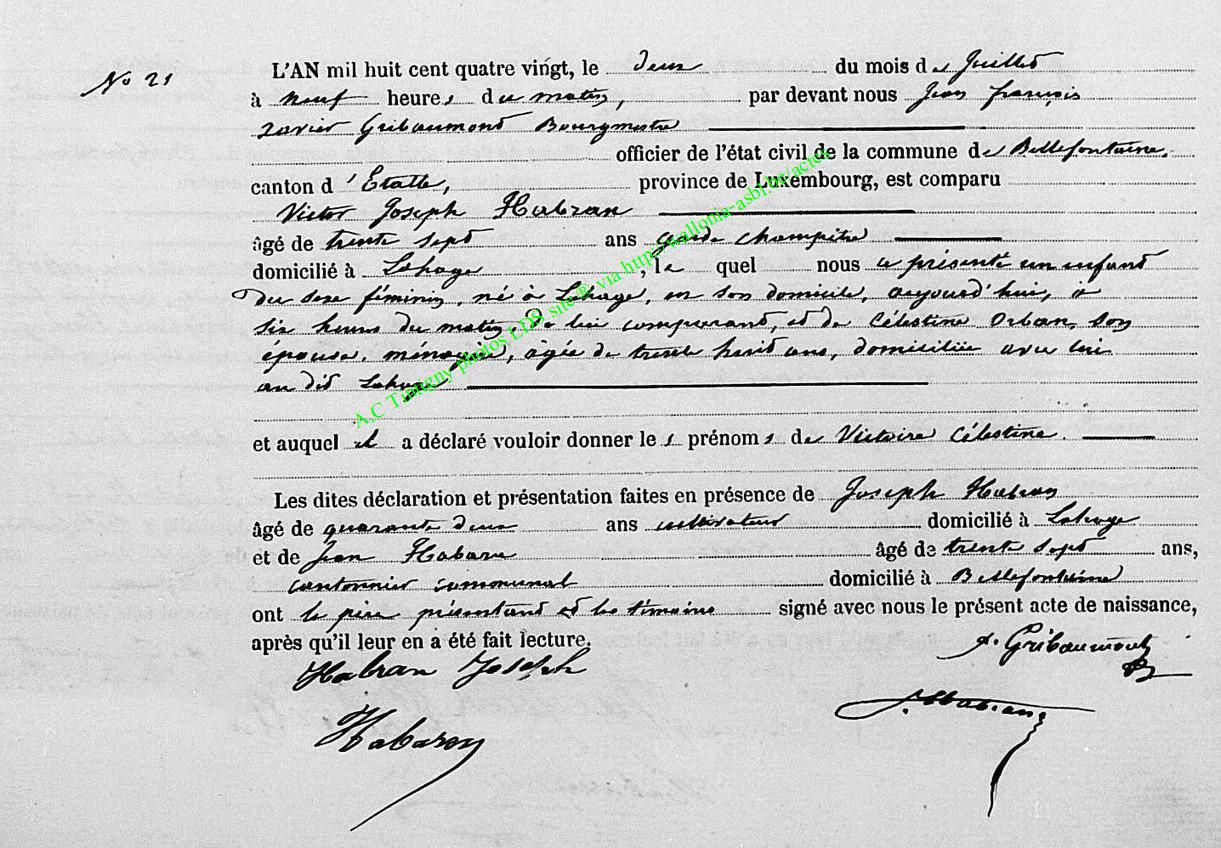 No 21
L'AN mil huit cent quatre vingt, le deux du mois de Juillet
à neuf heures du matin, par devant nous Jean françois
Xavier Gribaumont Bourgmestre
officier de l'état civil de la commune de Bellefontaine,
canton d'Etalle, province de Luxembourg, est comparu
Victor Joseph Habran
âgé de trente sept ans garde champêtre
domicilié à Lahage, le quel nous a présenté un enfant
du sexe féminin, né à Lahage, en son domicile, aujourd'hui, à
six heures du matin, de lui comparant, et de Célestine Orban, son
épouse, ménagère, âgée de trente huit ans, domiciliée avec lui
au dit Lahage
et auquel il a déclaré vouloir donner les prénoms de Victoire Célestine.
Les dites déclaration et présentation faites en présence de Joseph Habran
âgé de quarante deux ans cultivateur domicilié à Lahage
et de Jean Habaru âgé de trente sept ans,
cantonnier communal domicilié à Bellefontaine
ont le père présentant et les témoins signé avec nous le présent acte de naissance,
après qu'il leur en a été fait lecture.
Gribaumont
Habran Joseph
Habran
Habaru
A.C Tintigny photos LDS site ® via http://wallonia-asbl.be/actes